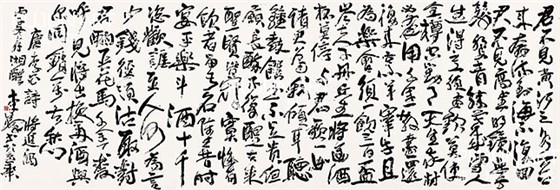 君不見黃河之水天上
來奔流到海不復回
君不見高堂明鏡悲白
髮朝如青絲暮成雪人
生得意須盡歡莫使
金樽空對月天生我材
必有用千金散盡還
復來烹羊宰牛且
為樂會須一飲三百杯
岑夫子丹丘生將進酒
杯莫停與君歌一曲
請君為我傾耳聽
鐘鼓饌玉不足貴但
願長醉不願醒古來聖
賢皆寂寞惟有
飲者留其名陳王昔時
宴平樂斗酒十千
恣歡謔主人何為言
少錢徑須沽取對
君酌五花馬千金裘
呼兒將出換美酒與
爾同銷萬古愁
唐李白詩將進酒